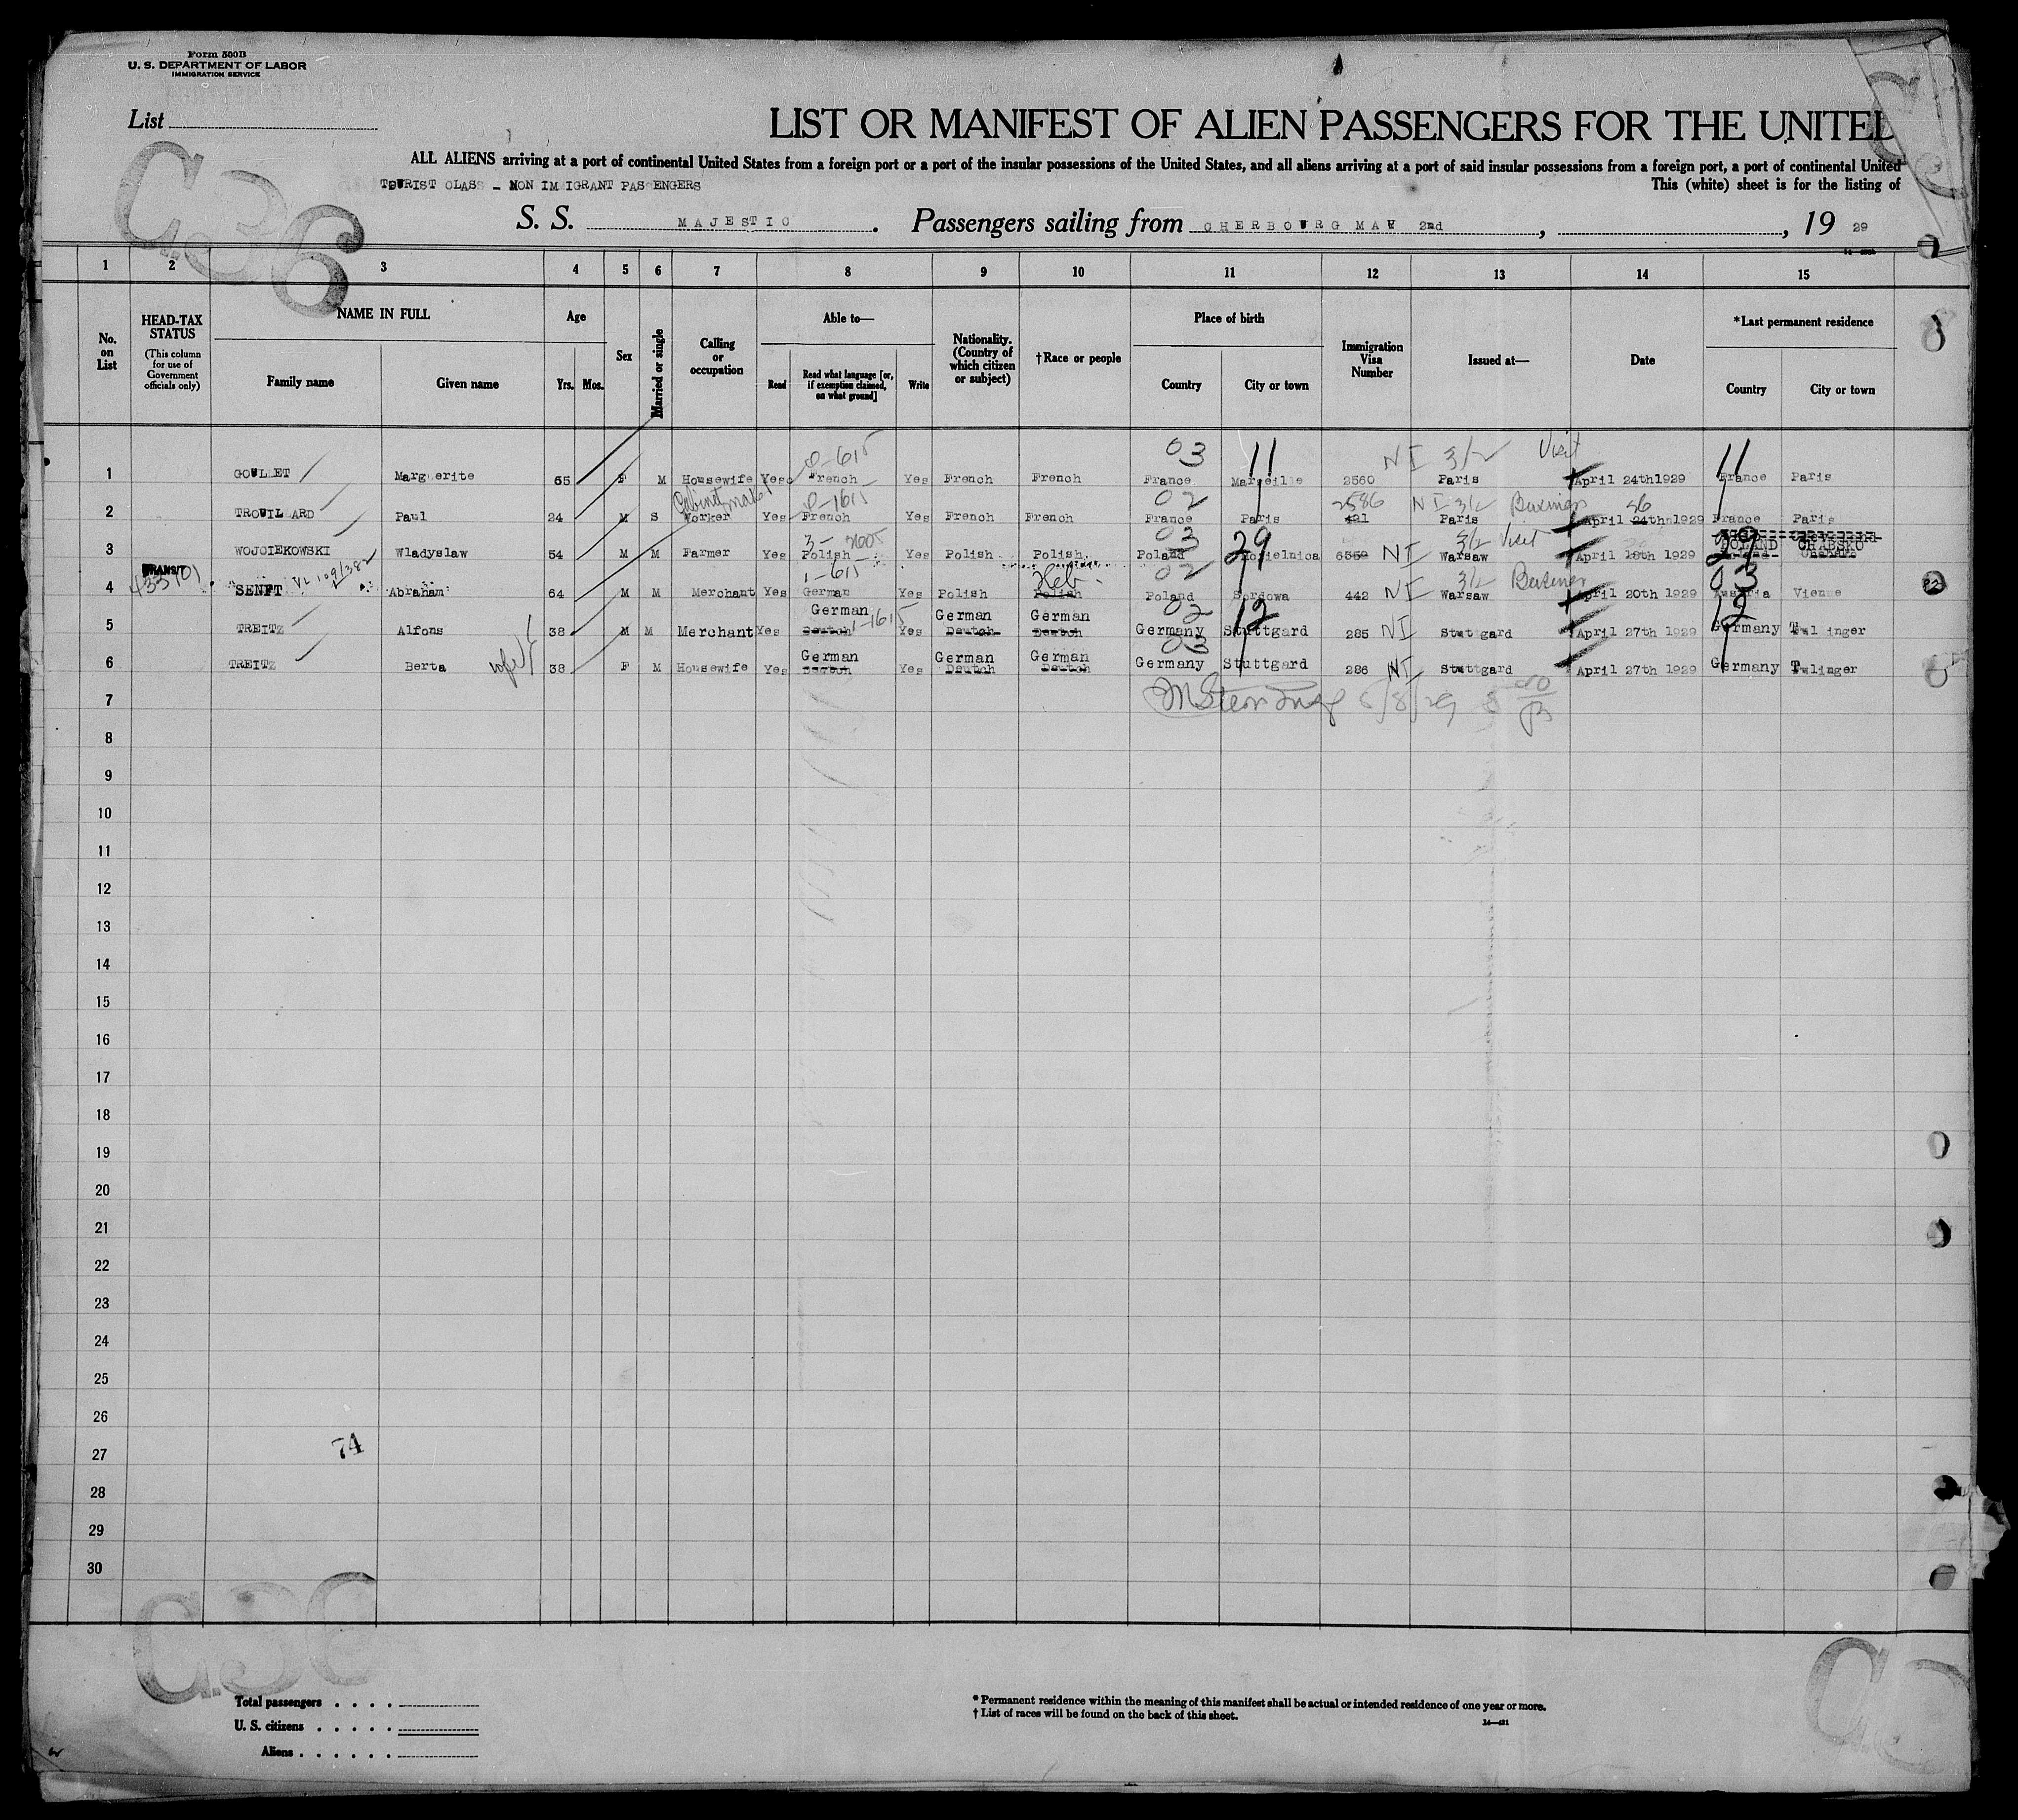 Form 500B
U. S. DEPARTMENT OF LABOR
IMMIGRATION SERVICE
List
LIST OR MANIFEST OF ALIEN PASSENGERS FOR THE UNITED
ALL ALIENS arriving at a port of continental United States from a foreign port or a port of the insular possessions of the United States, and all aliens arriving at a port of said insular possessions from a foreign port, a port of continental United
TOURIST CLASS - NON IMMIGRANT PASSENGERS
This (white) sheet is for the listing of
C.36
S. S. MAJESTIC. Passengers sailing from CHERBOURG MAY 2nd, , 19 29
1 2 3 4 5 6 7 8 9 10 11 12 13 14 15
No. on List
HEAD-TAX STATUS
(This column for use of Government officials only)
NAME IN FULL
Family name Given name
Age
Yrs. Mos.
Sex
Married or single
Calling or occupation
Able to—
Read
Read what language [or, if exemption claimed, on what ground]
Write
Nationality. (Country of which citizen or subject)
†Race or people
Place of birth
Country City or town
Immigration Visa Number
Issued at—
Date
*Last permanent residence
Country City or town
03 11 NI 3/2 Visit 11
1 GOULLET Marguerite 65 F M Housewife Yes French Yes French French France Marseille 2560 Paris April 24th 1929 France Paris
Cabinet maker 02 2586 NI 3/2 Business 26
2 TROUILLARD Paul 24 M S Worker Yes French Yes French French France Paris 421 Paris April 24th 1929 France Paris
03 29 3/2 Visit 29 POLAND CHABSKO
3 WOJCIEKOWSKI Wladyslaw 54 M M Farmer Yes Polish Yes Polish Polish Poland NI Warsaw April 1929
TRANSIT 433701 1-615 Heb. 02 3/2 Business 03
4 SENFT Abraham 64 M M Merchant Yes German Yes Polish Polish Poland 442 NI Warsaw April 20th 1929 Austria Vienne
German German German 02 12 12
5 TREITZ Alfons 38 M M Merchant Yes Deutch Yes Deutch Deutch Germany Stuttgard 285 NI Stuttgard April 27th 1929 Germany
wife German German German 03
6 TREITZ Berta 38 F M Housewife Yes Deutch Yes Deutch Deutch Germany Stuttgard 286 NI Stuttgard April 27th 1929 Germany
5/8/29
7
8
9
10
11
12
13
14
15
16
17
18
19
20
21
22
23
24
25
26
27
74
28
29
30
C.36
Total passengers
U. S. citizens
Aliens
* Permanent residence within the meaning of this manifest shall be actual or intended residence of one year or more.
† List of races will be found on the back of this sheet.